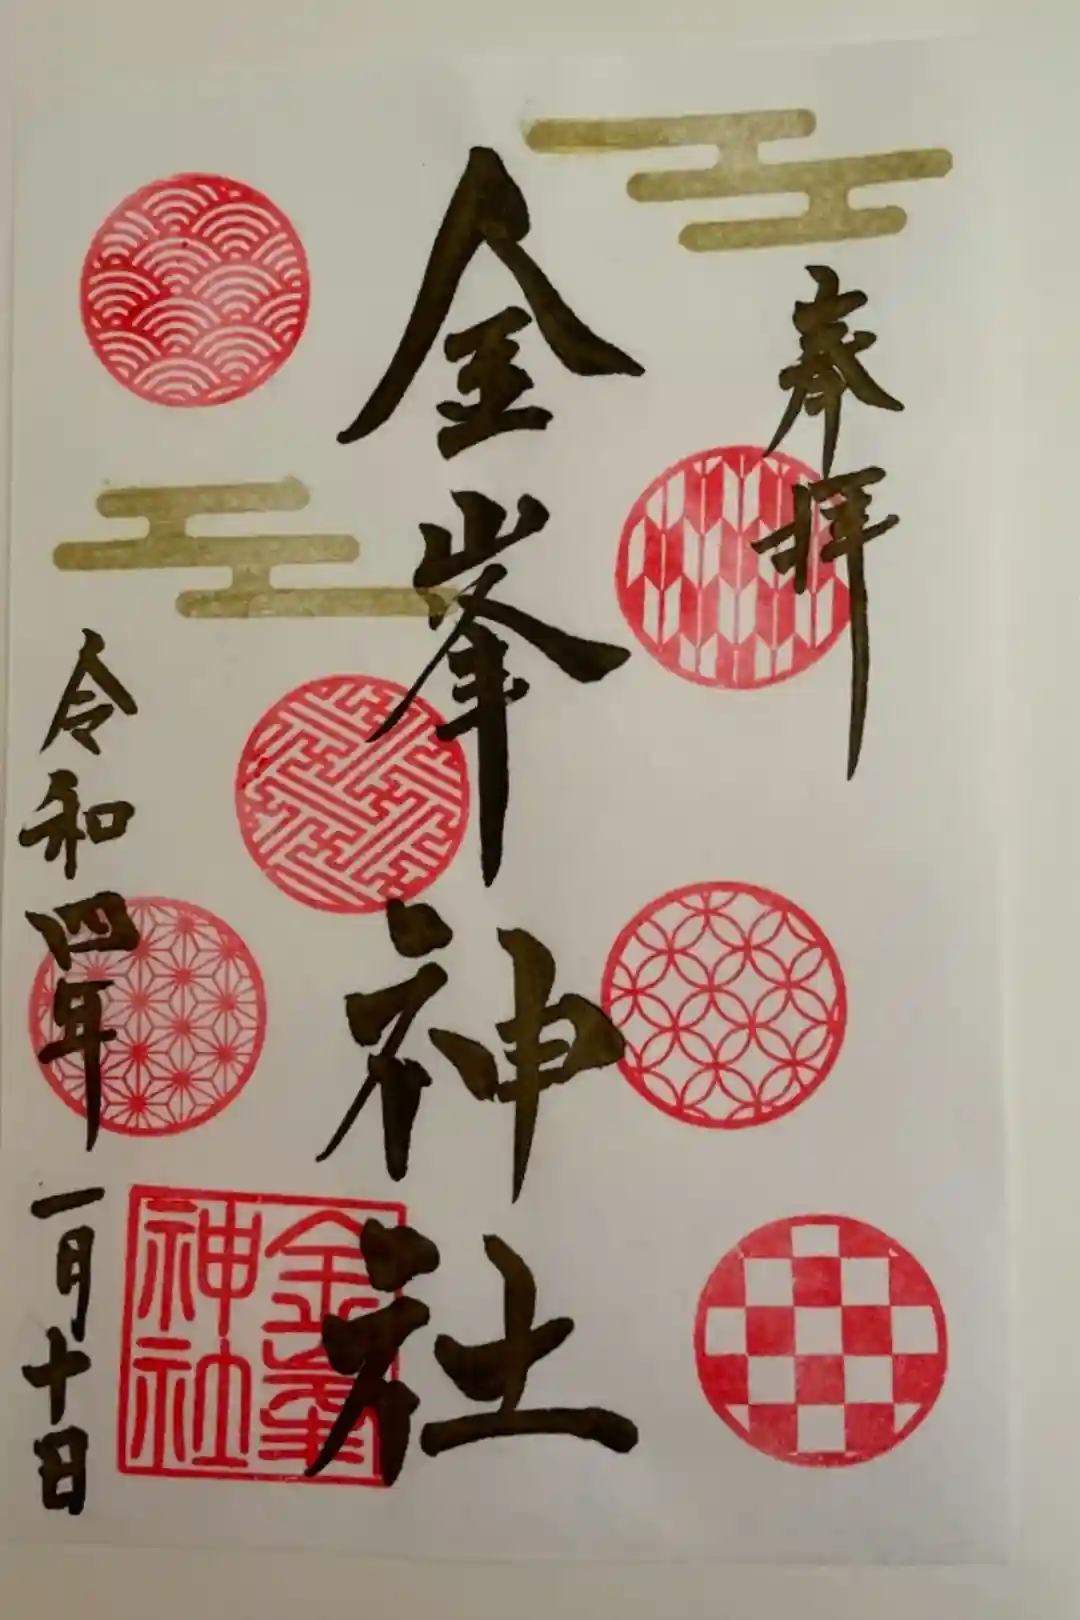 奉拝
金峯神社
金峯神社
令和四年一月十日